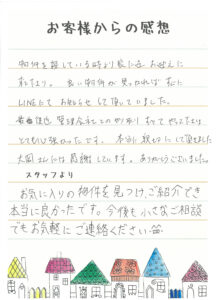 お客様からの感想
物件を探している時より家に住むお世話に
なっており、良い物件が見つかれば 私に
LINEにて お知らせして頂いていました。
管理会社とのやりとり
とても心強かったです。 本当に親切にして頂きました
大岡さんには感謝しています。ありがとうございました。
スタッフより
お気に入りの物件を見つけ、ご紹介でき
本当に良かったです。今後も小さなご相談
でもお気軽にご連絡ください